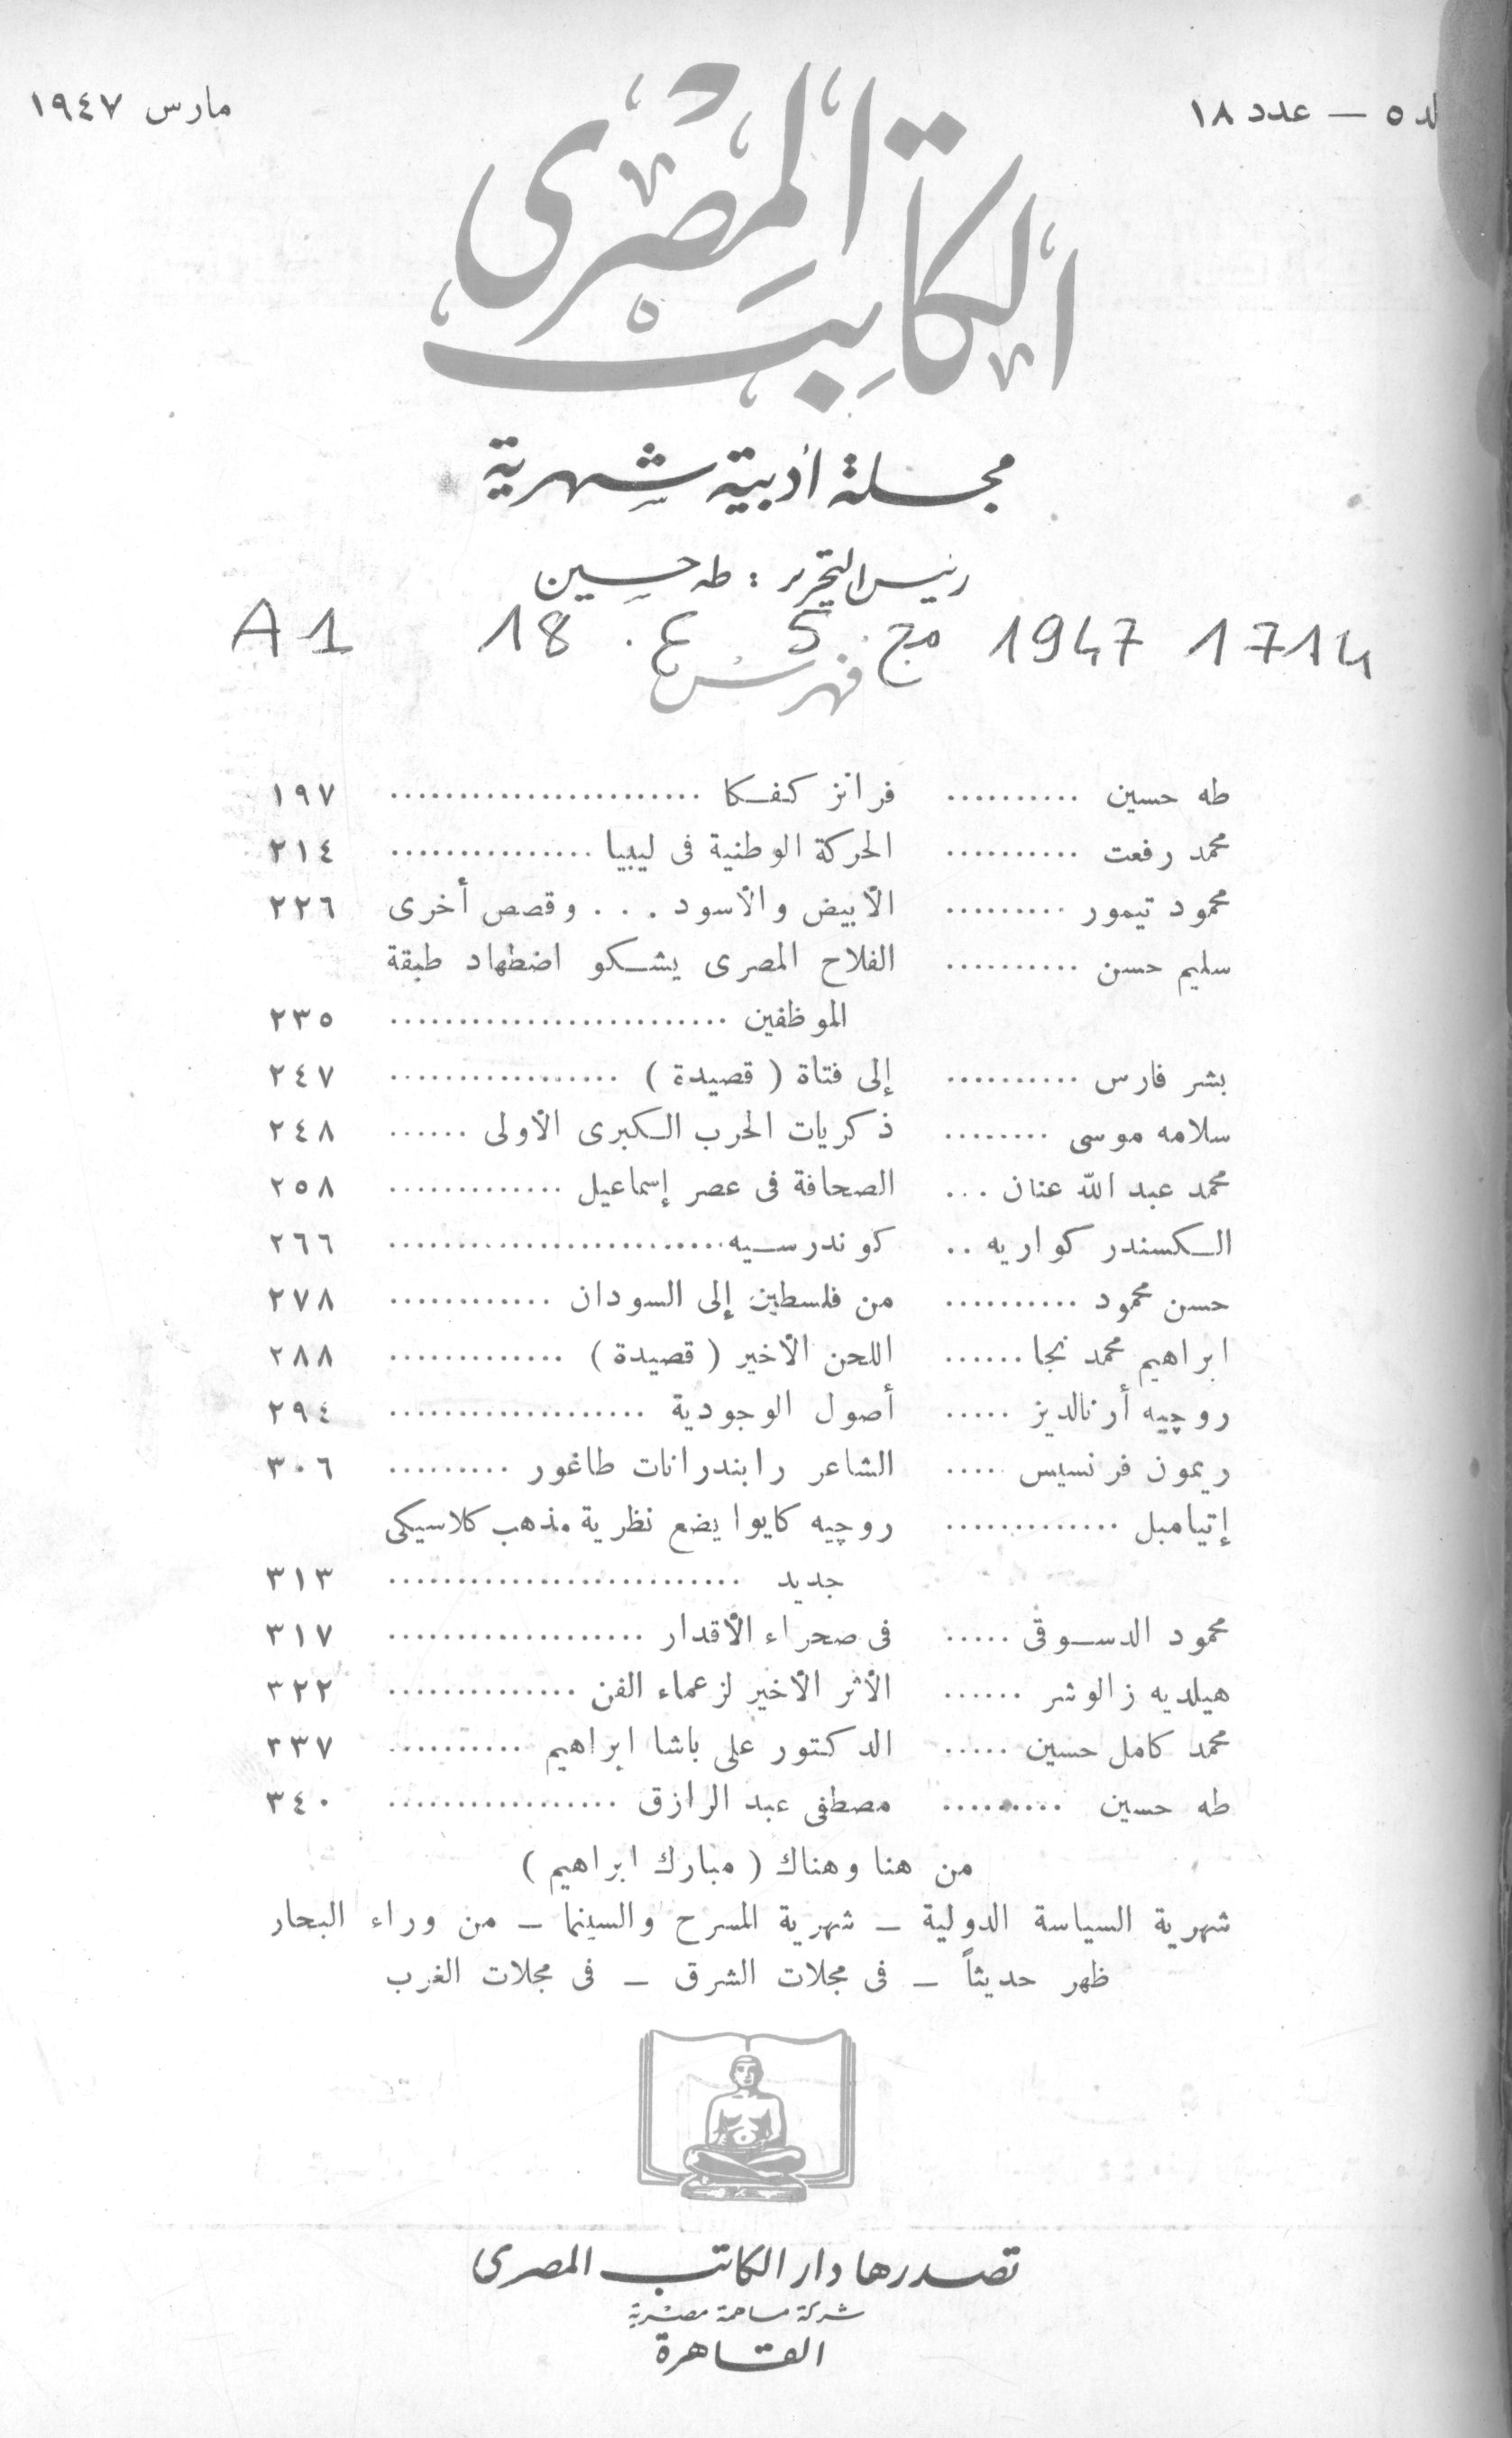 لد ٥ — عدد ١٨ مارس ١٩٤٧
الكاتب المصرى
مجلة أدبية شهرية
رئيس التحرير : طه حسين
1714 1947 مج. 5 ع. 18 A1
فهرس
طه حسين .......... فرانز كفكا ....................... ١٩٧
محمد رفعت .......... الحركة الوطنية فى ليبيا ............... ٢١٤
محمود تيمور ......... الأبيض والأسود . . . وقصص أخرى ٢٢٦
سليم حسن .......... الفلاح المصرى يشكو اضطهاد طبقة
الموظفين ......................... ٢٣٥
بشر فارس .......... إلى فتاة ( قصيدة ) ................. ٢٤٧
سلامه موسى ........ ذكريات الحرب الكبرى الأولى ...... ٢٤٨
محمد عبد الله عنان ... الصحافة فى عصر إسماعيل ............. ٢٥٨
الكسندر كواريه .. كوندرسيه ......................... ٢٦٦
حسن محمود .......... من فلسطين إلى السودان ............ ٢٧٨
ابراهيم محمد نجا ...... اللحن الأخير ( قصيدة ) ............. ٢٨٨
روچيه أرنالديز ..... أصول الوجودية ................... ٢٩٤
ريمون فرنسيس ..... الشاعر رابندرانات طاغور ......... ٣٠٦
إتيامبل ............. روچيه كايوا يضع نظرية مذهب كلاسيكى
جديد .......................... ٣١٣
محمود الدسوقى ..... فى صحراء الأقدار ................... ٣١٧
هيلديه زالوشر ...... الأثر الأخير لزعماء الفن .............. ٣٢٢
محمد كامل حسين ..... الدكتور على باشا ابراهيم .......... ٣٣٧
طه حسين ......... مصطفى عبد الرازق ................. ٣٤٠
من هنا وهناك ( مبارك ابراهيم )
شهرية السياسة الدولية – شهرية المسرح والسينما – من وراء البحار
ظهر حديثاً – فى مجلات الشرق – فى مجلات الغرب
تصدرها دار الكاتب المصرى
شركة مساهمة مصرية
القاهرة